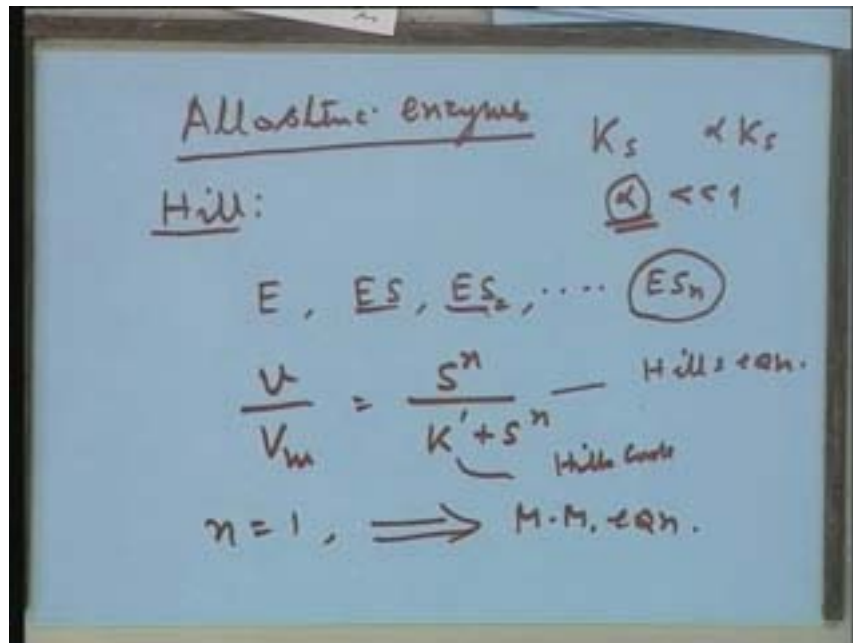 Allosteric enzymes
Ks αKs
Hill:
α << 1
E, ES, ES₂, .... ESn
v/Vm = Sⁿ/(K' + Sⁿ) — Hills eqn.
Hills
n = 1, ⟹ M.M. eqn.